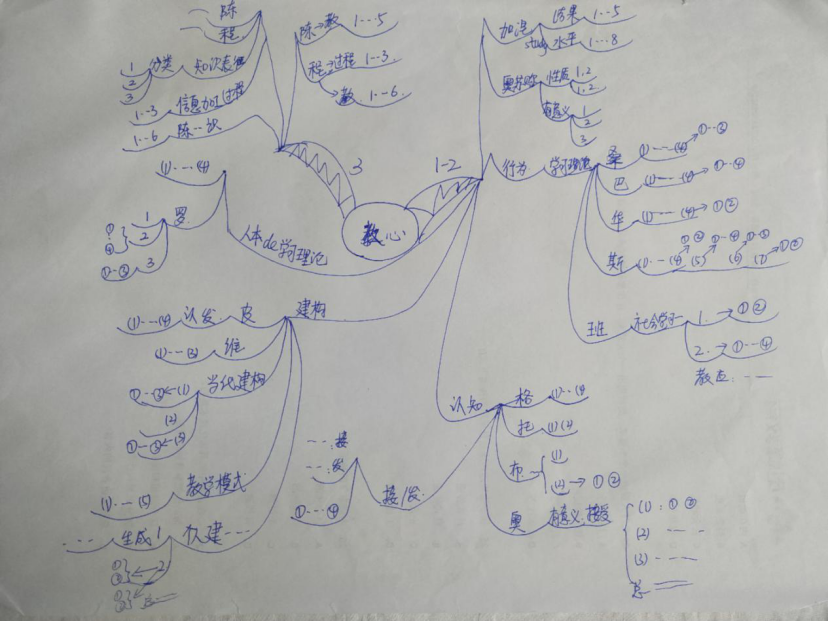 陈
程
1 分类 知识表征
2
3
1--3 信息加工过程
1--6 陈--识
陈→教 1---5
程→过程 1--3.
→教 1.--6.
3
1-2
教心
加涅 结果 1---5
水平 1---8
奥苏 性质 1.2
1.2
有意义 1
2
3
行为 学习理论 桑 (1)----(4)→①--③
巴 (1)----(4)→①--④
华 (1)----(4)→①②
斯 (1)---(4) (5) (6) (7)
班 社会学习 1.→①②
2.→①--④
(1)---(4)
罗 1
2
3
人本de学习理论
建构
皮 认发 (1)---(4)
维 (1)---(3)
当代建构 (1)
(2)
(3)
教学模式 (1)---(5)
认建----
生成 1
2
认知 格 (1)--(4)
托 (1)(2)
布 (1)
(2)→①②
奥 有意义.接受 (1):①②
(2) ----
(3) ---
总
接/发.
---接
---发
①---④